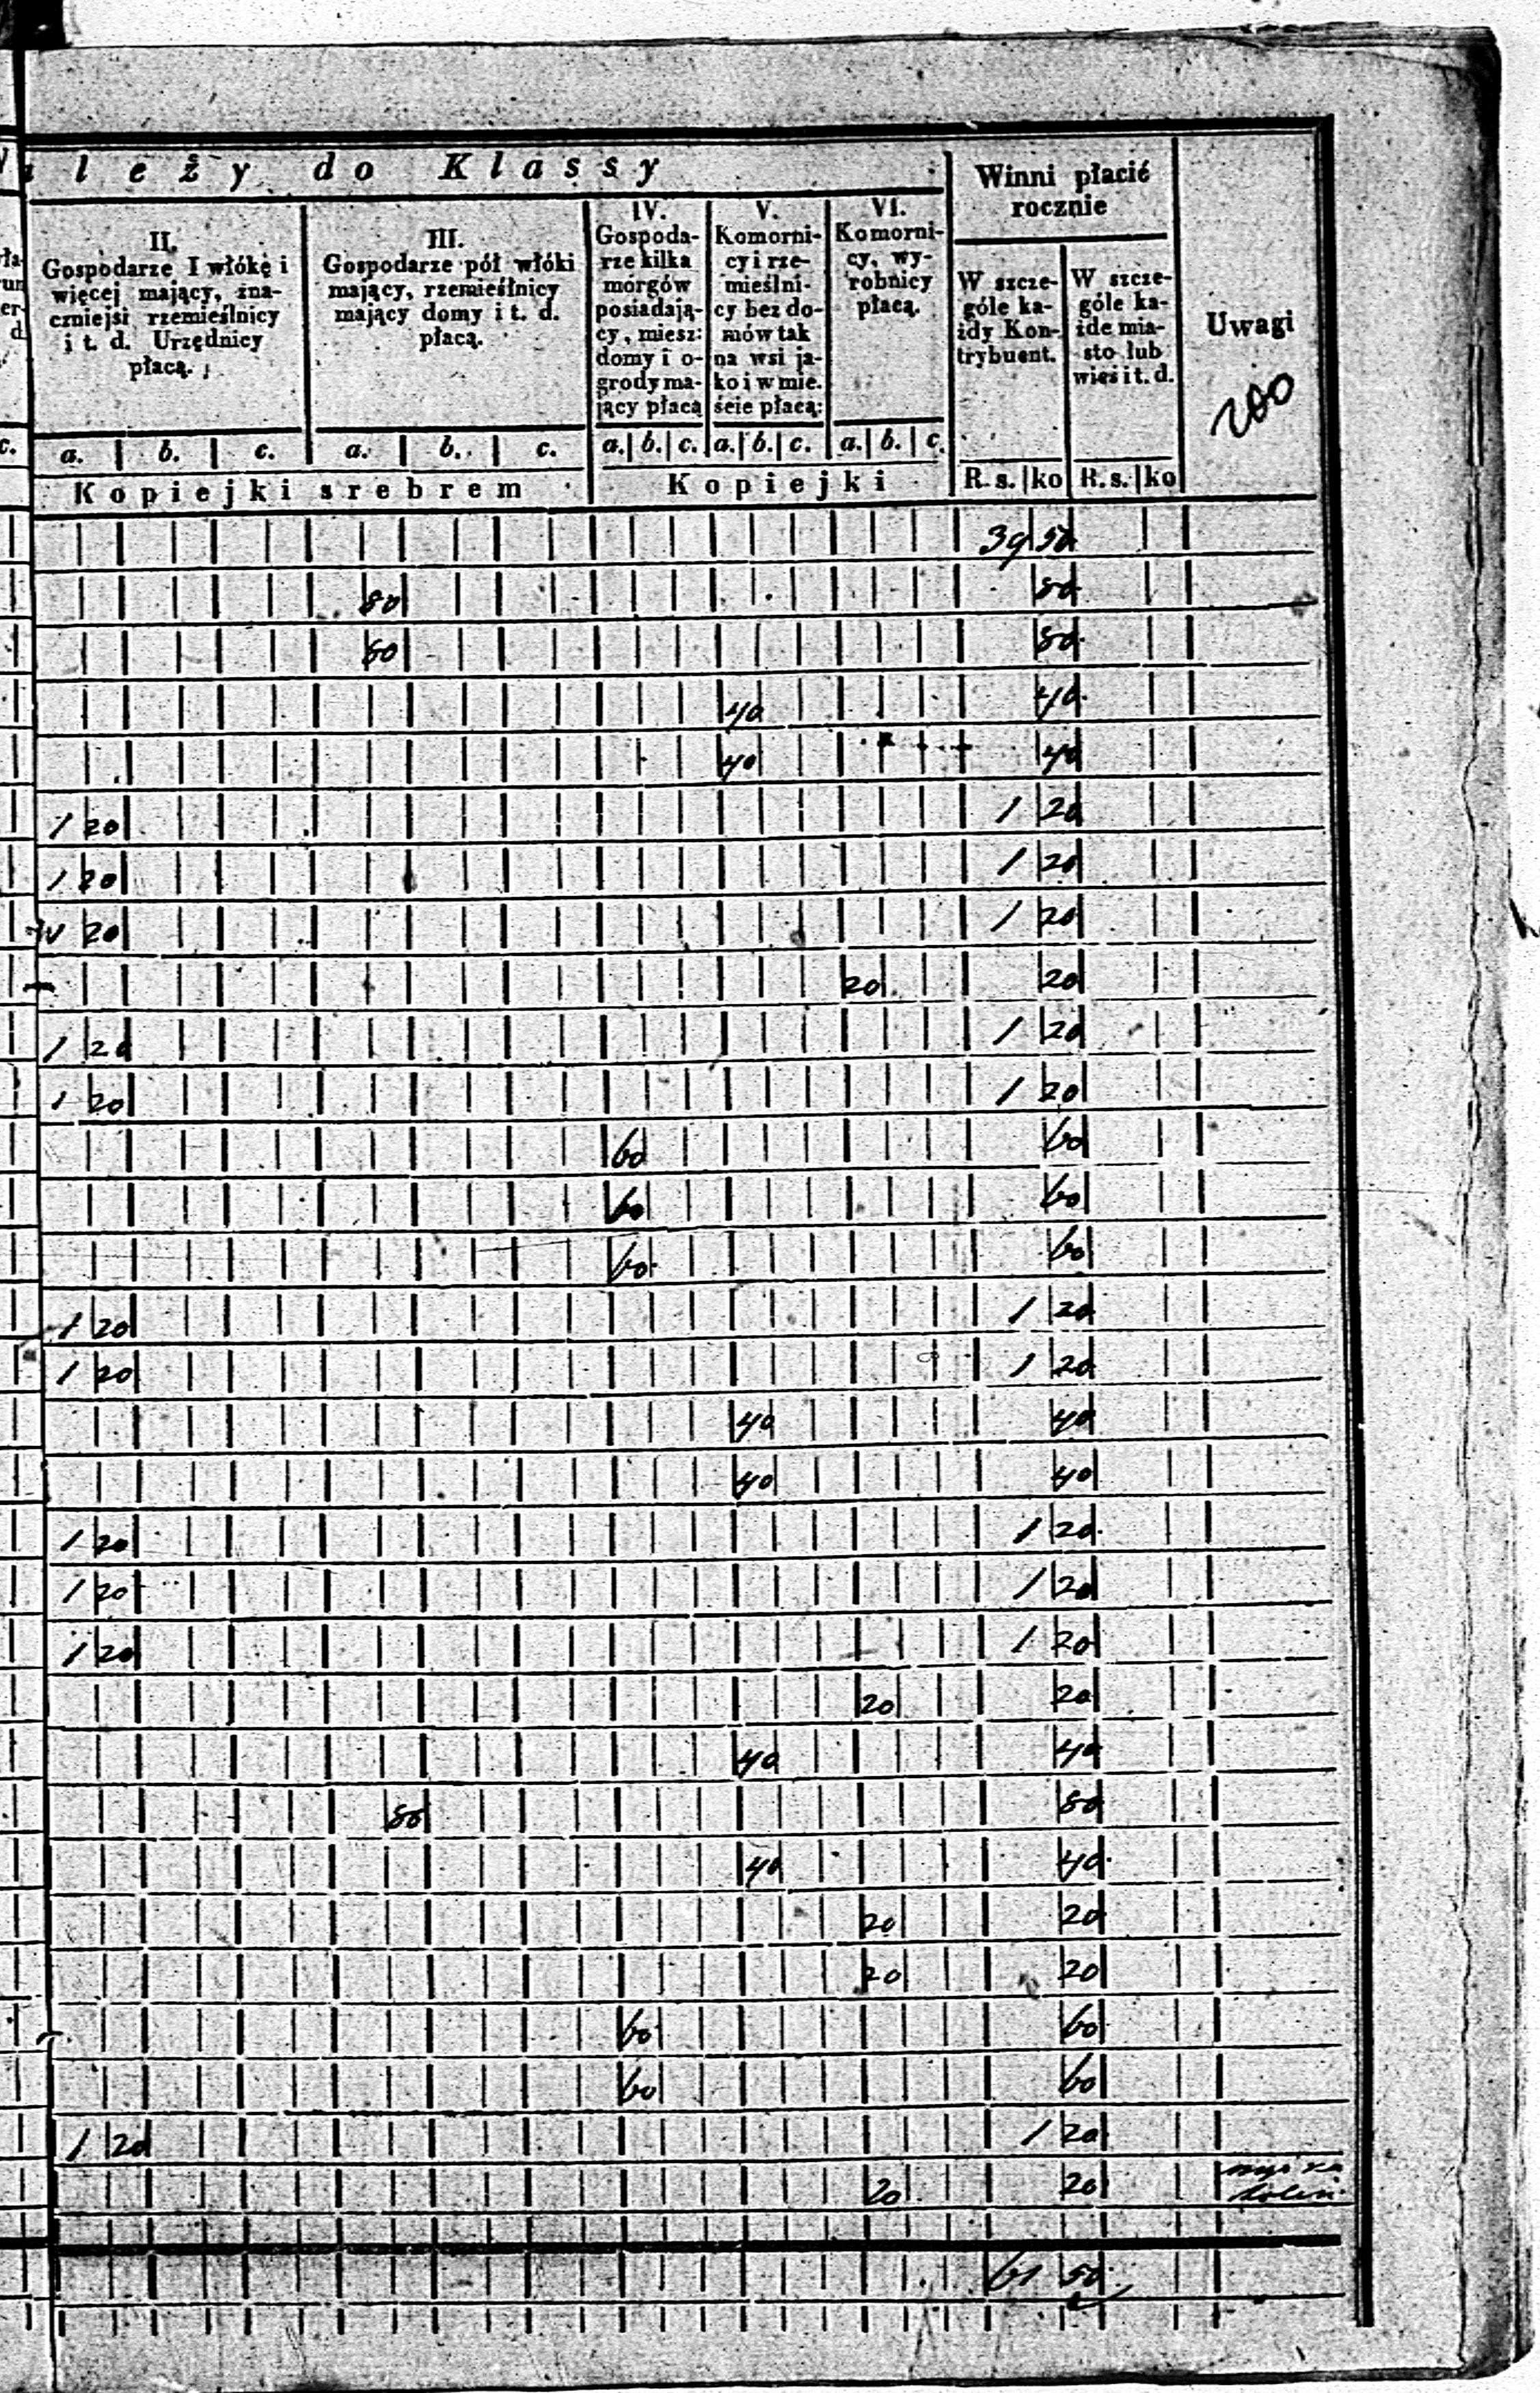 leży do Klassy
Winni płacić
rocznie
Uwagi
200
II.
Gospodarze I włókę i
więcej mający, zna-
czniejsi rzemieślnicy
i t. d. Urzędnicy
płacą.
III.
Gospodarze pół włóki
mający, rzemieślnicy
mający domy i t. d.
płacą.
IV.
Gospoda-
rze kilka
morgów
posiadają-
cy, miesz:
domy i o-
grody ma-
jący płacą
V.
Komorni-
cy i rze-
mieślni-
cy bez do-
mów tak
na wsi ja-
ko i w mie.
ście płacą:
VI.
Komorni-
cy, wy-
robnicy
płacą.
W szcze-
góle ka-
żdy Kon-
trybuent.
W szcze-
góle ka-
żde mia-
sto lub
wieś i t. d.
c. a. b. c. a. b. c. a. b. c. a. b. c. a. b. c.
Kopiejki srebrem Kopiejki R. s. ko R. s. ko
39 50
80 80
80 80
40 40
40 40
1 20 1 20
1 20 1 20
1 20 1 20
20 20
1 20 1 20
1 20 1 20
60 60
60 60
60 60
1 20 1 20
1 20 1 20
40 40
40 40
1 20 1 20
1 20 1 20
1 20 1 20
20 20
40 40
80 80
40 40
20 20
20 20
60 60
60 60
1 20 1 20
20 20
61 50